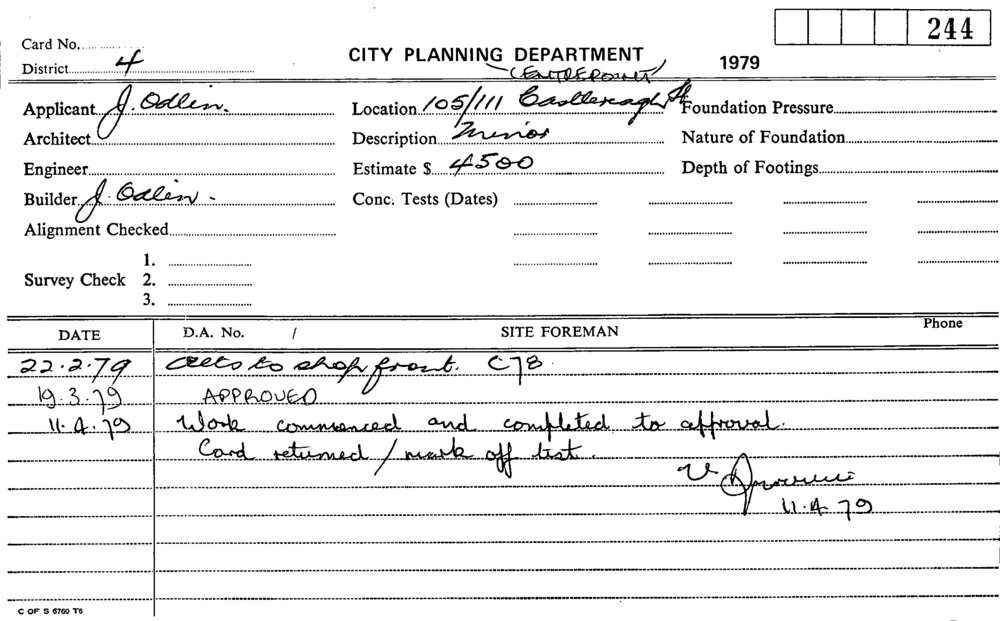 244
Card No.
District 4
CITY PLANNING DEPARTMENT
(CENTREPOINT)
1979
Applicant J. Odlin.
Location 105/111 Castlereagh St
Foundation Pressure
Architect
Description Minor
Nature of Foundation
Engineer
Estimate $ 4500
Depth of Footings
Builder J. Odlin.
Conc. Tests (Dates)
Alignment Checked
Survey Check
1.
2.
3.
DATE D.A. No. / SITE FOREMAN Phone
22.2.79 Alts to shop front. C78.
19.3.79 APPROVED
11.4.79 Work commenced and completed to approval.
Card returned / mark off list.
11.4.79
C OF S 6760 T6